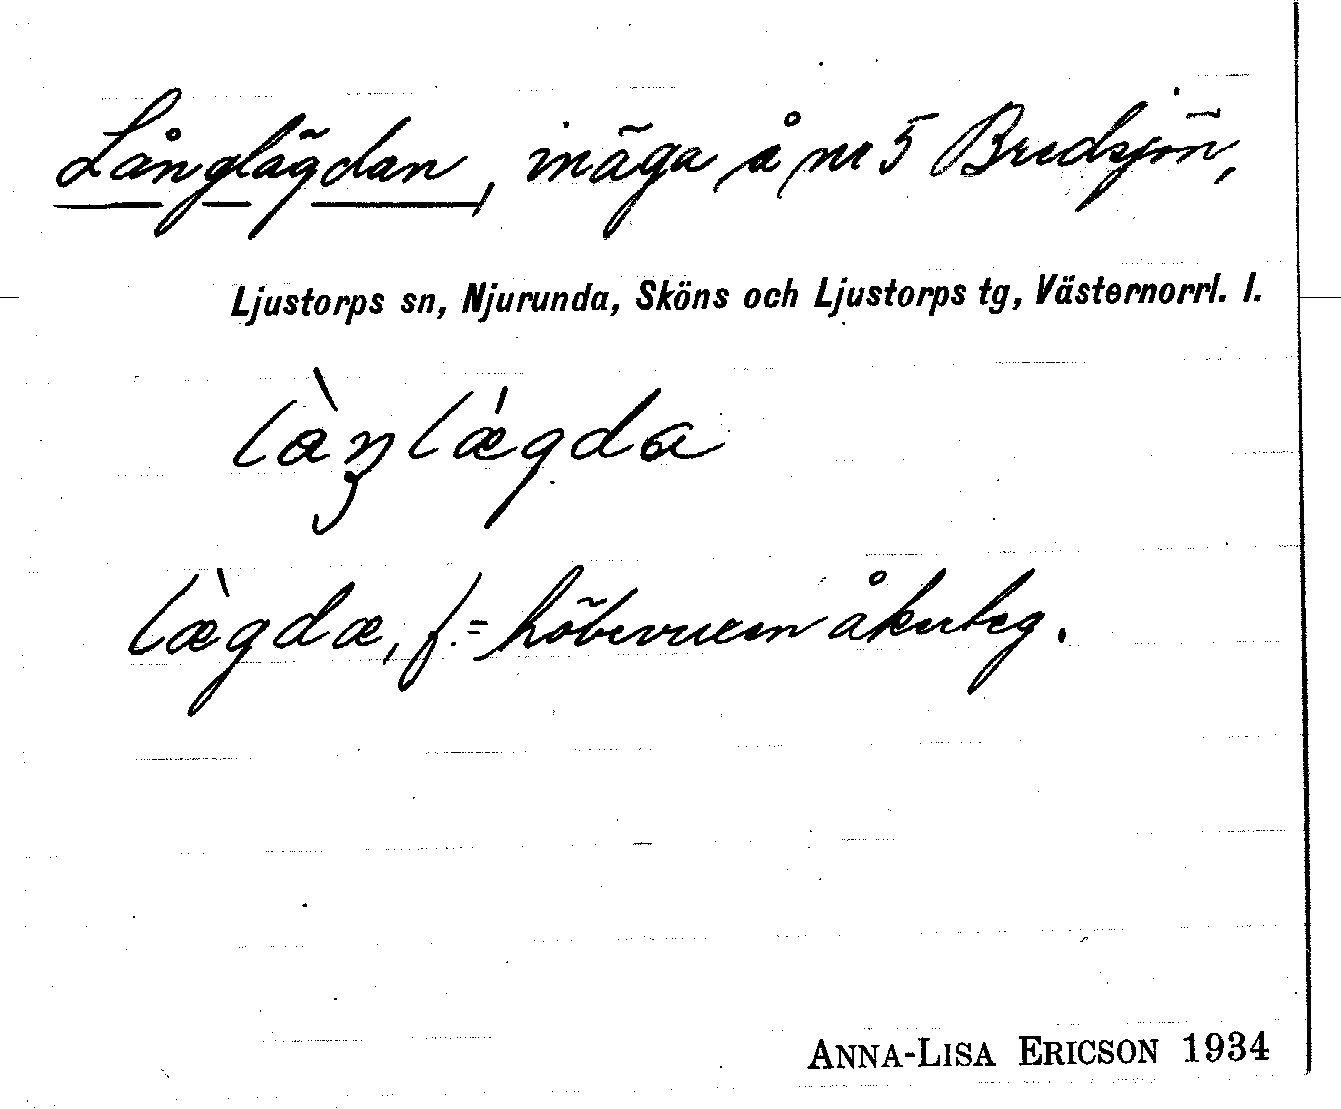 Långlägdan, inäga å nr 5 Bredsjön,
Ljustorps sn, Njurunda, Sköns och Ljustorps tg, Västernorrl. l.
làŋlǽgda
læ̀gdæ, f. = höbevuxen åkerteg.
ANNA-LISA ERICSON 1934